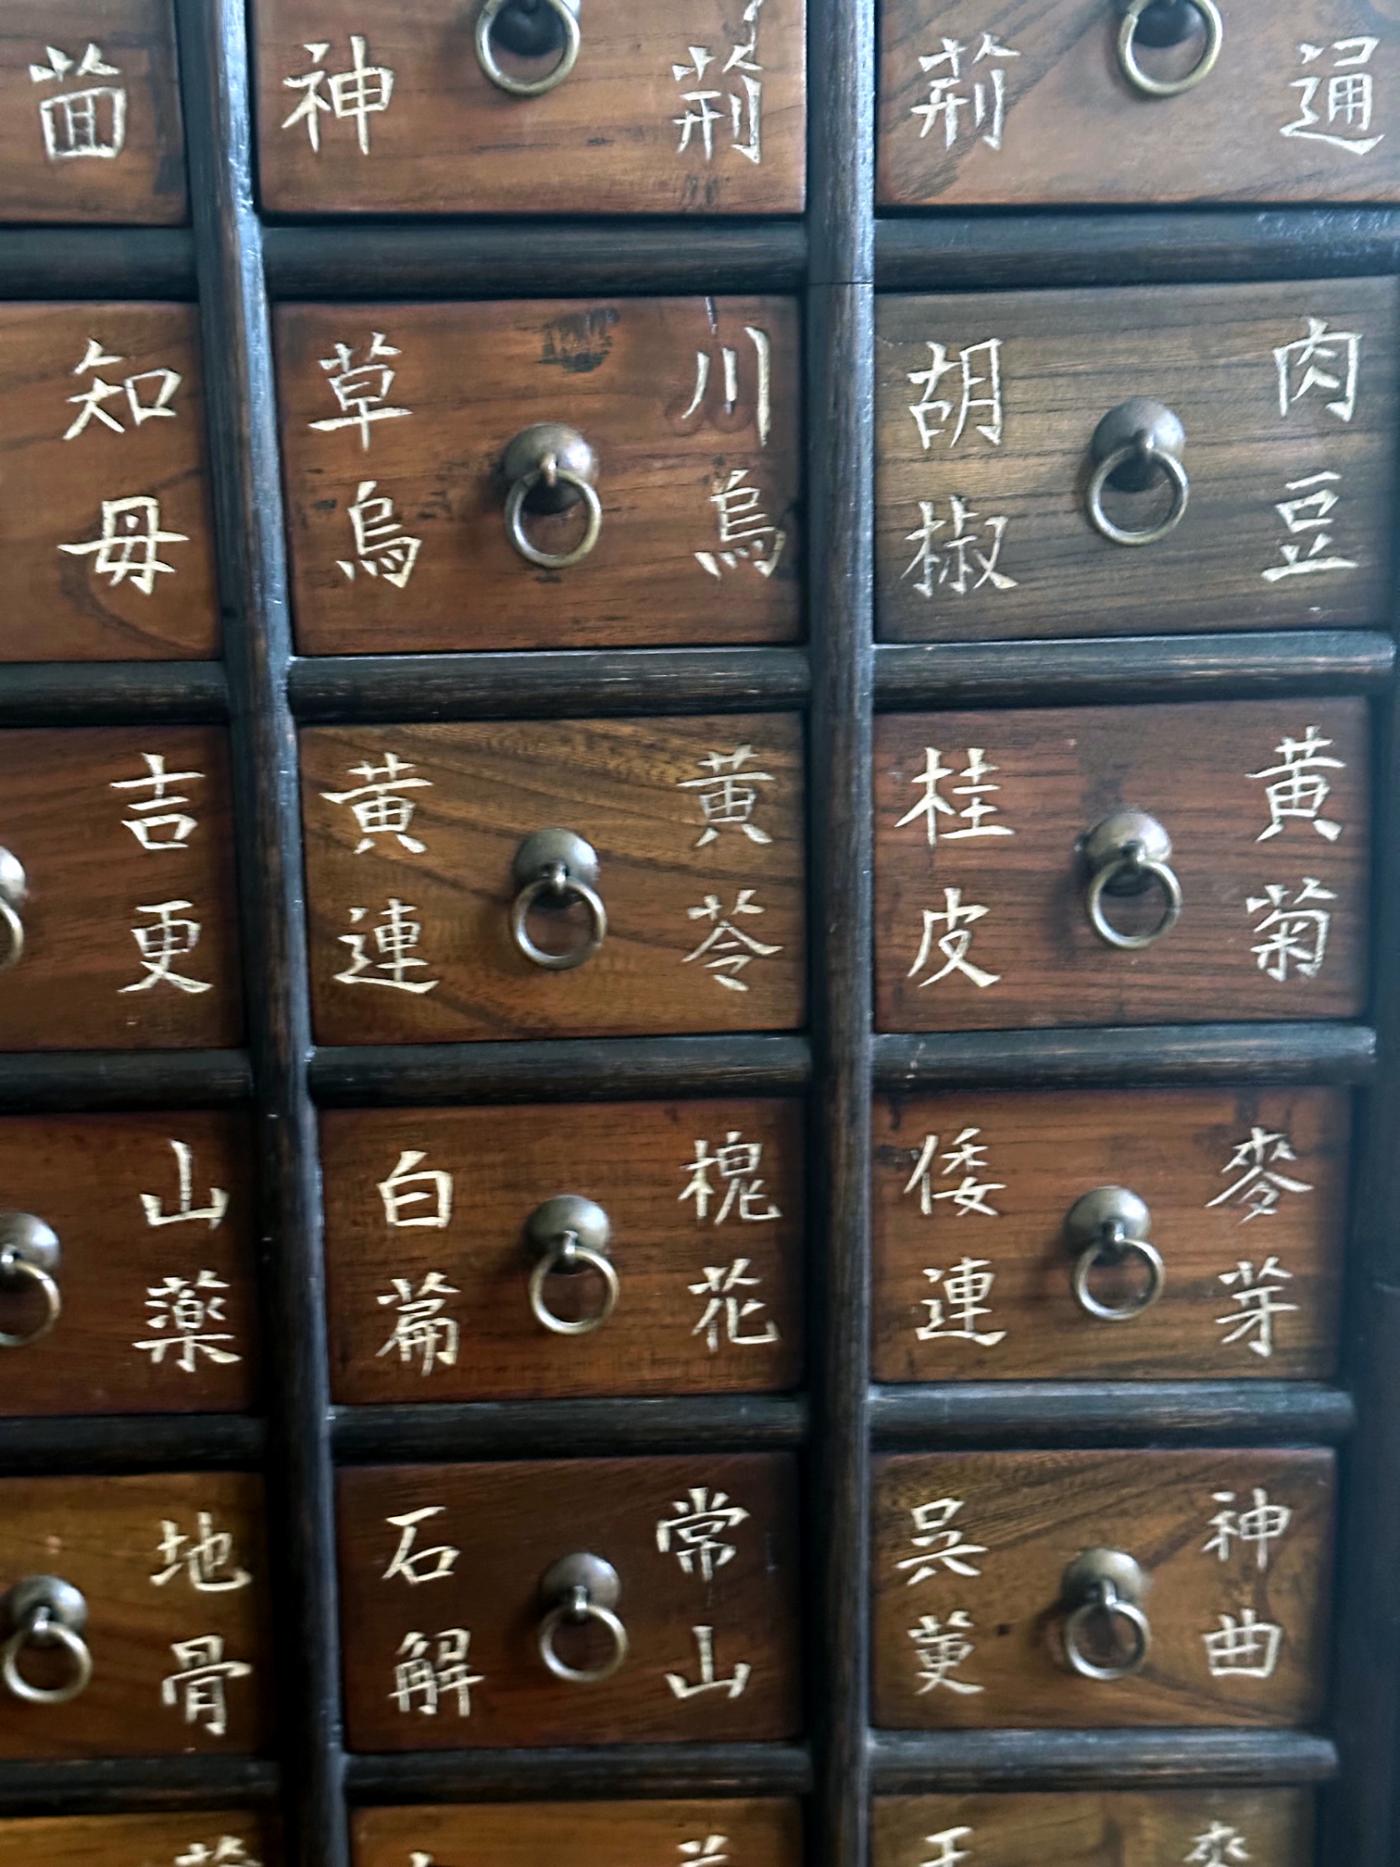 茴
神 荊
荊 通
知母
草烏 川烏
胡椒 肉豆
吉更
黄連 黄芩
桂皮 黄菊
山薬
白萹 槐花
倭連 麥芽
地骨
石解 常山
呉茰 神曲